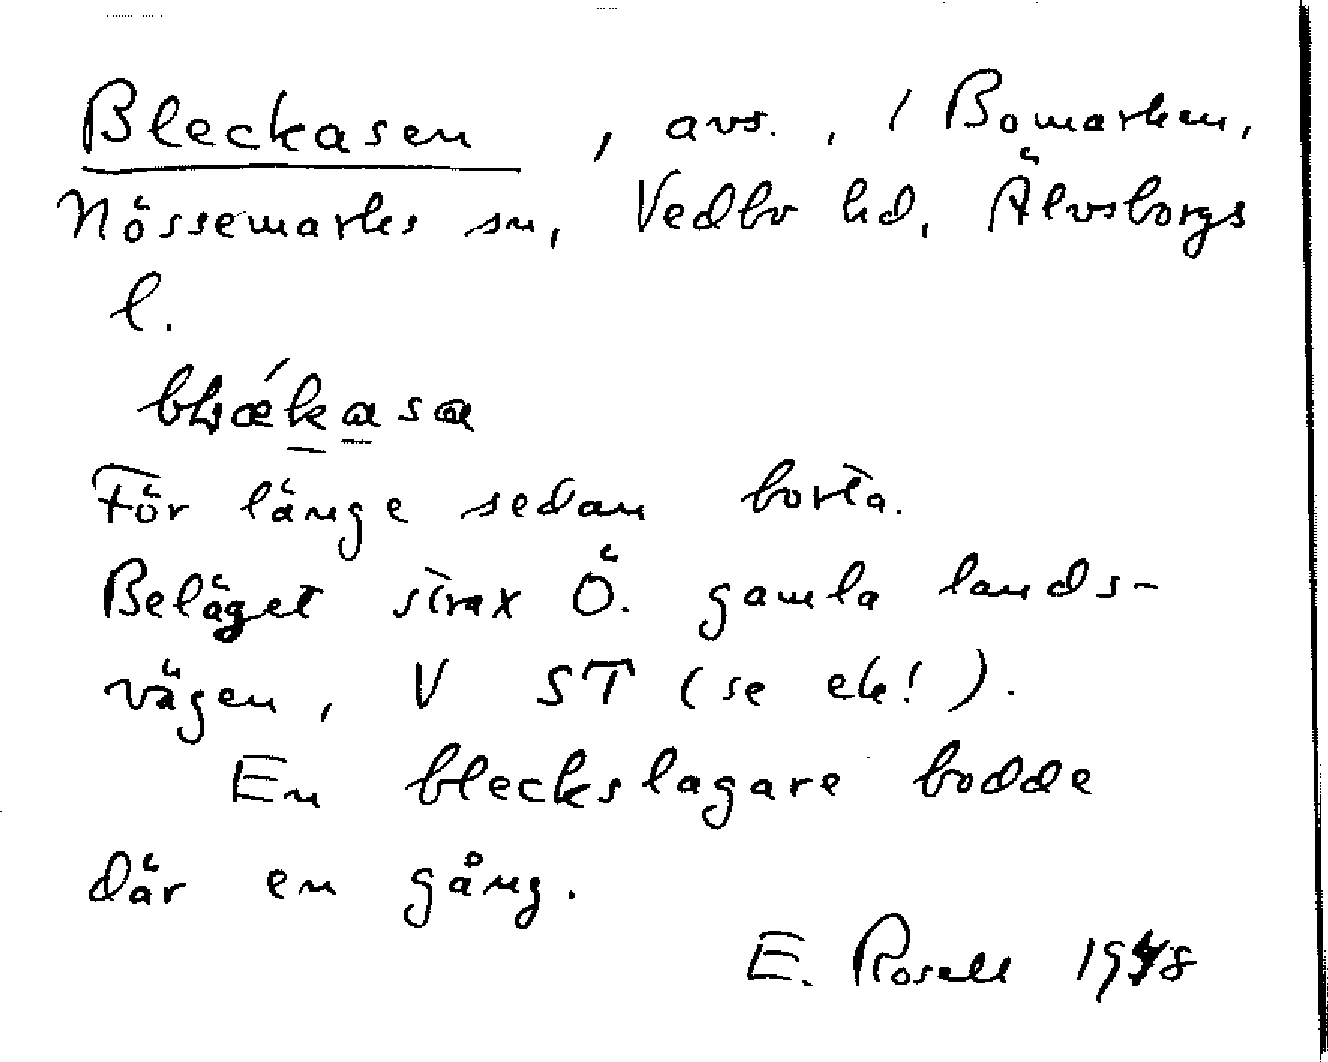 Bleckasen, avs., i Bomarken,
Nössemarks sn, Vedbo hd, Älvsborgs
l.
För länge sedan borta.
Beläget strax Ö. gamla lands-
vägen, V ST (se ek!).
En bleckslagare bodde
där en gång.
E. Rosell 1948